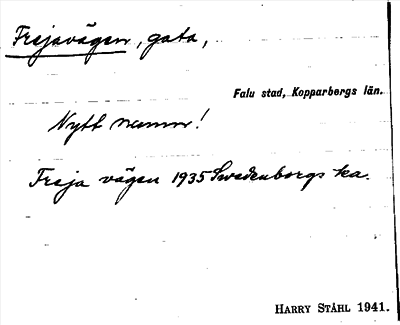 Frejavägen, gata,
Falu stad, Kopparbergs län.
Nytt namn!
Freja vägen 1935 Swedenborgs ka.
HARRY STÅHL 1941.